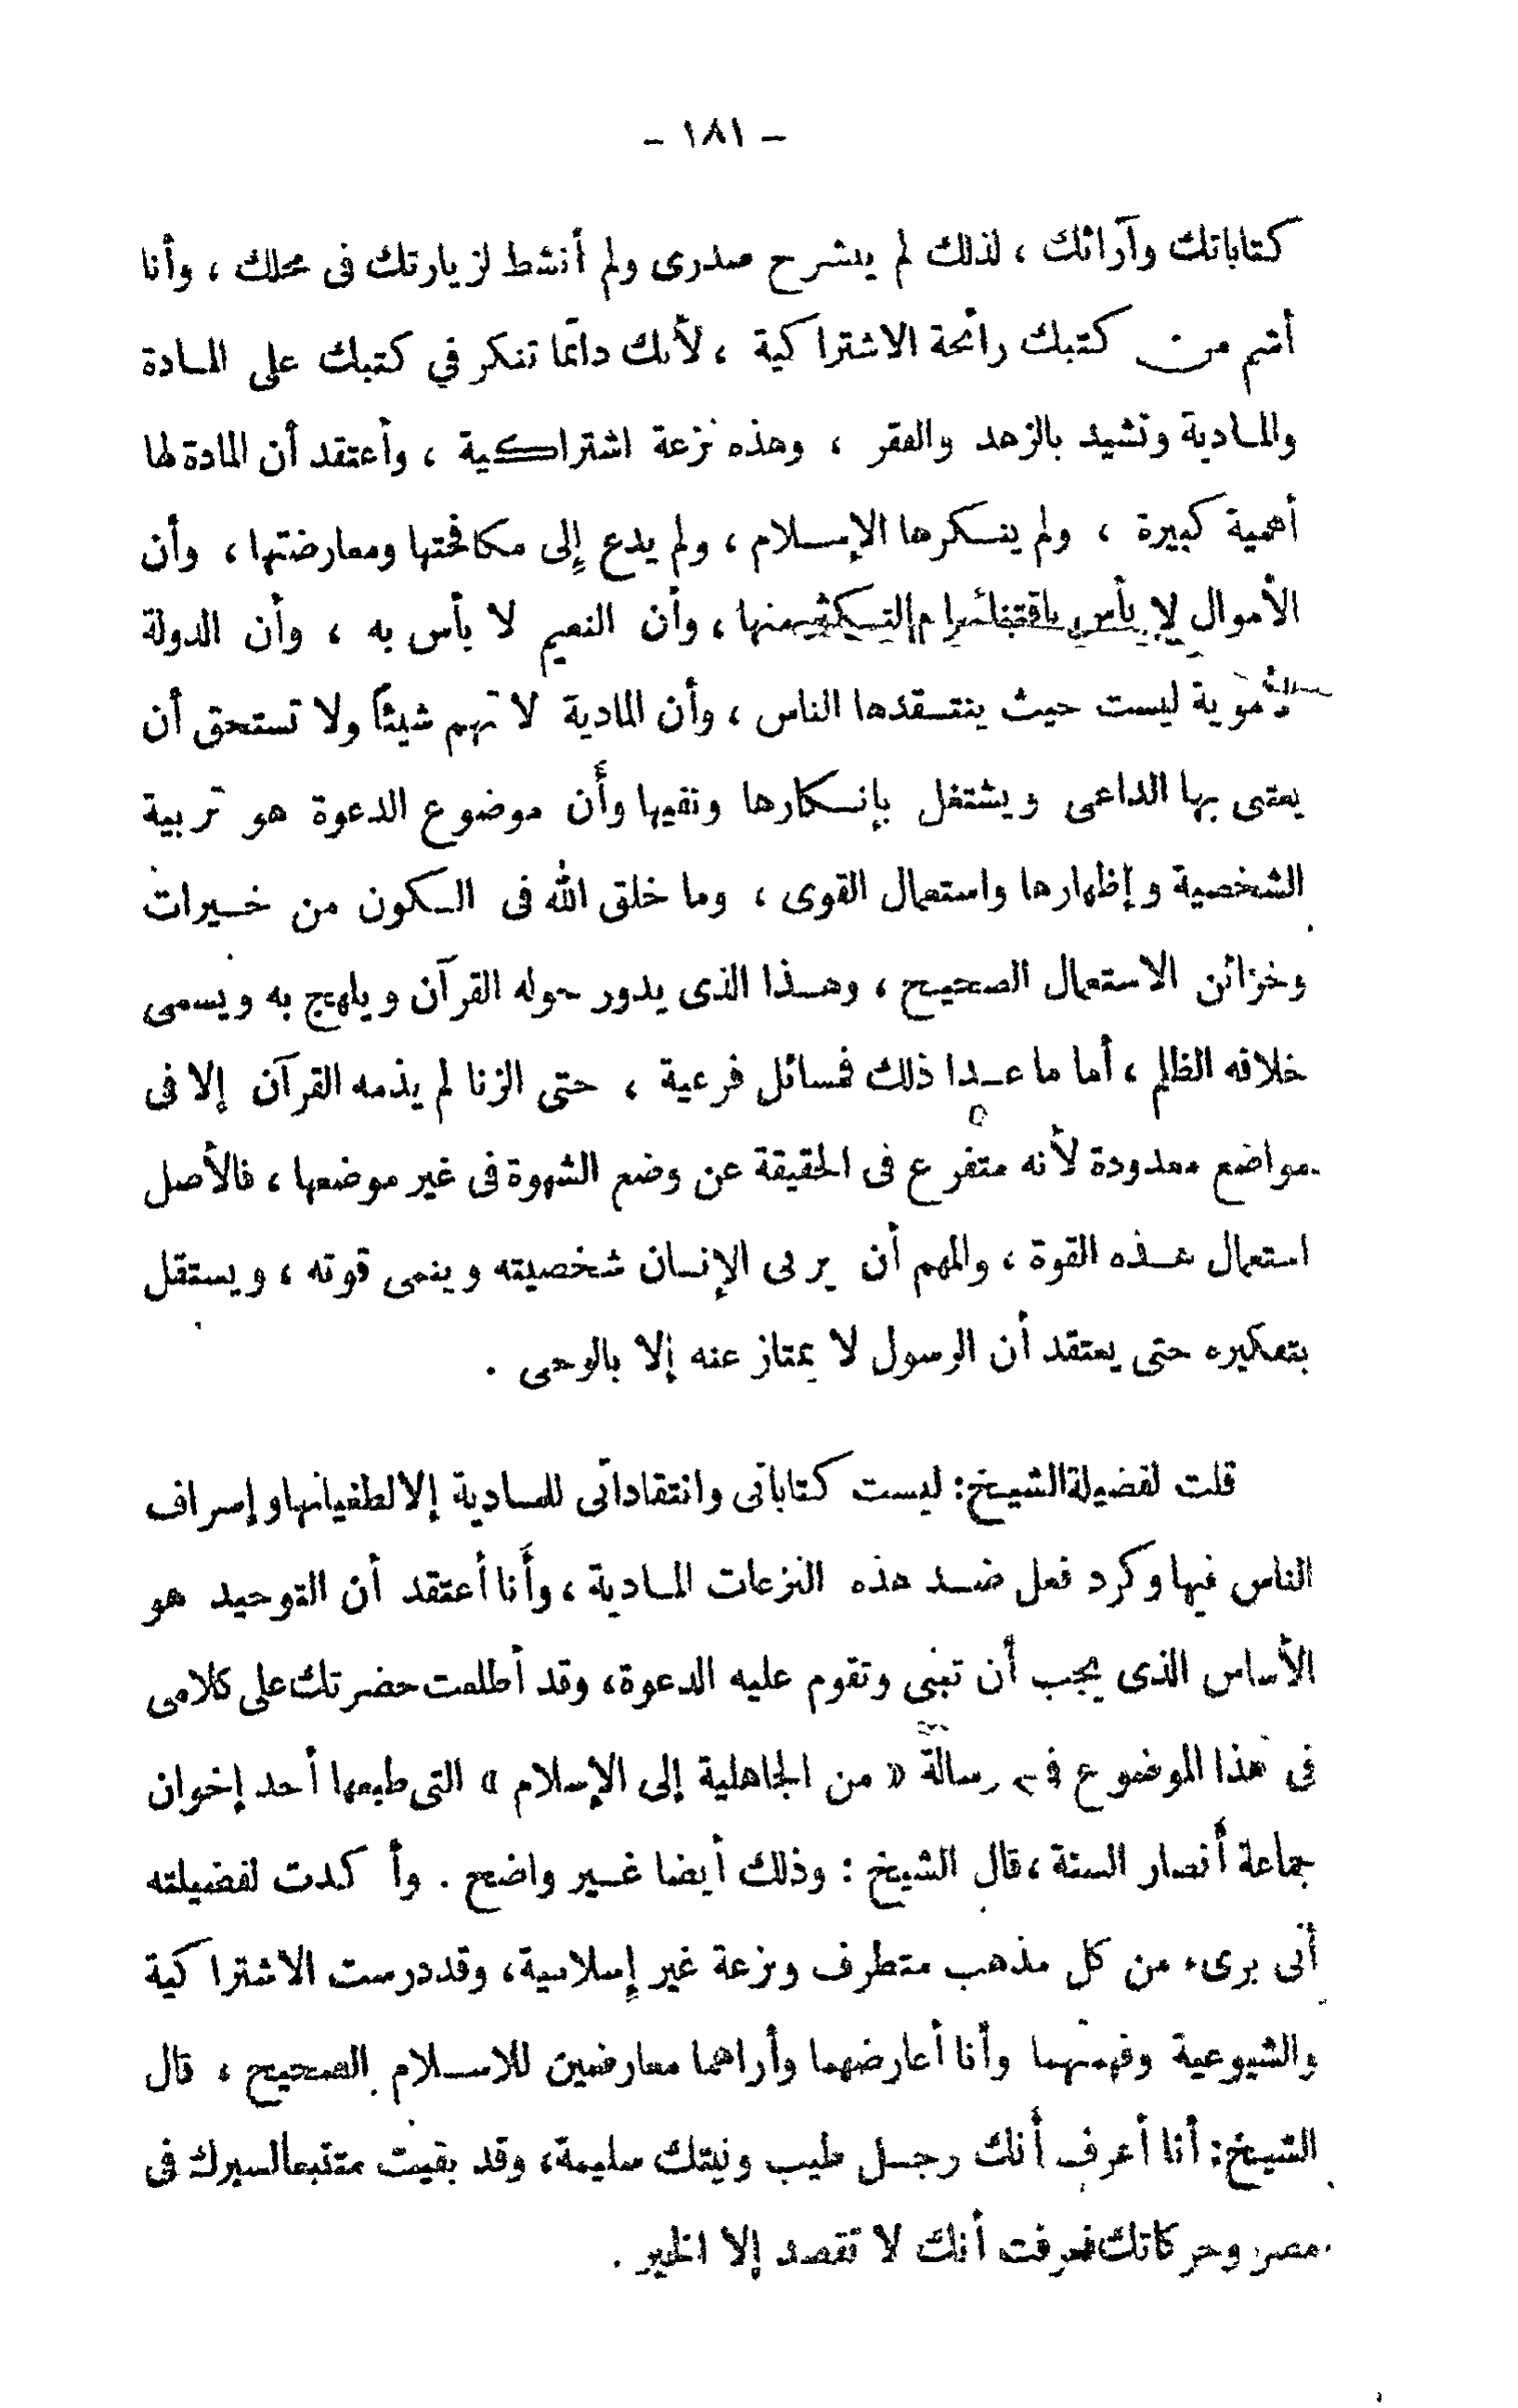 - ١٨١ -
كتاباتك وآرائك ، لذلك لم ينشرح صدرى ولم أنشط لزيارتك فى محلك ، وأنا
أشم من كتبك رائحة الاشتراكية ، لأنك دائما تنكر في كتبك على المادة
والمادية وتشيد بالزهد والفقر ، وهذه نزعة اشتراكية ، وأعتقد أن المادة لها
أهمية كبيرة ، ولم ينكرها الإسلام ، ولم يدع إلى مكافحتها ومعارضتها ، وأن
الأموال لا بأس باقتنائها والتكثير منها ، وأن النعيم لا بأس به ، وأن الدولة
الأموية ليست حيث ينتقدها الناس ، وأن المادية لا تهم شيئاً ولا تستحق أن
يعتنى بها الداعى ويشتغل بإنكارها ونفيها وأن موضوع الدعوة هو تربية
الشخصية وإظهارها واستعمال القوى ، وما خلق الله فى الكون من خيرات
وخزائن الاستعمال الصحيح ، وهذا الذى يدور حوله القرآن ويلهج به ويسمى
خلافه الظلم ، أما ما عدا ذلك فمسائل فرعية ، حتى الزنا لم يذمه القرآن إلا فى
مواضع معدودة لأنه متفرع فى الحقيقة عن وضع الشهوة فى غير موضعها ، فالأصل
استعمال هذه القوة ، والمهم أن يربى الإنسان شخصيته وينمى قوته ، ويستقل
بتفكيره حتى يعتقد أن الرسول لا يمتاز عنه إلا بالوحى .
قلت لفضيلة الشيخ : ليست كتاباتى وانتقاداتى للمادية إلا لطغيانها وإسراف
الناس فيها وكرد فعل ضد هذه النزعات المادية ، وأنا أعتقد أن التوحيد هو
الأساس الذى يجب أن تبنى وتقوم عليه الدعوة ، وقد أطلعت حضرتك على كلامى
فى هذا الموضوع فى رسالة « من الجاهلية إلى الإسلام » التى طبعها أحد إخوان
جماعة أنصار السنة ، قال الشيخ : وذلك أيضا غير واضح . وأكدت لفضيلته
أنى برىء من كل مذهب متطرف ونزعة غير إسلامية ، وقد درست الاشتراكية
والشيوعية وفهمتهما وأنا أعارضهما وأراهما معارضين للاسلام الصحيح ، قال
الشيخ : أنا أعرف أنك رجل طيب ونيتك سليمة ، وقد بقيت متتبعا لسيرك فى
مصر وحركاتك فعرفت أنك لا تقصد إلا الخير .